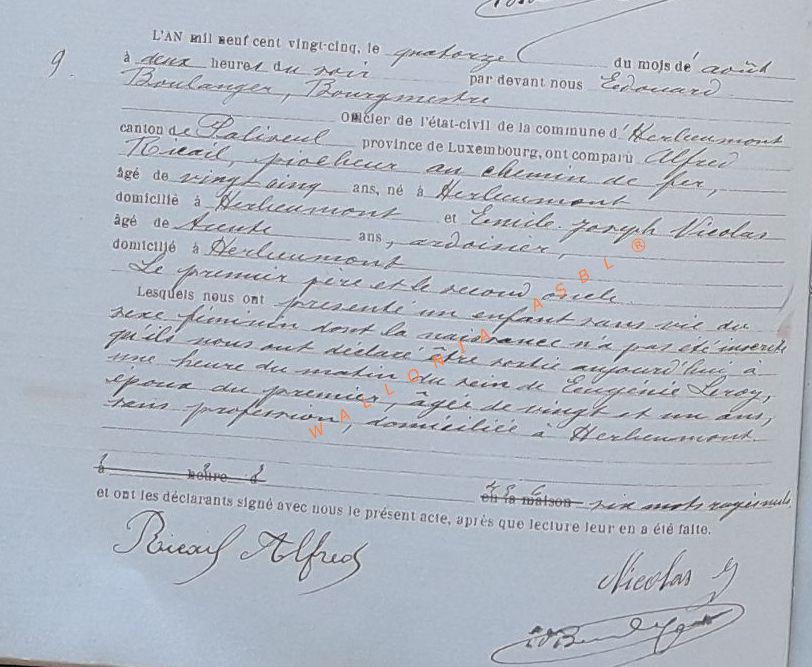 9.
L'AN mil neuf cent vingt-cinq, le quatorze du mois de août
à deux heures du soir par devant nous Edouard
Boulanger, Bourgmestre
Officier de l'état-civil de la commune d'Herbeumont
canton de Paliseul province de Luxembourg, ont comparu Alfred
Ricail, piocheur au chemin de fer,
âgé de vingt cinq ans, né à Herbeumont
domicilié à Herbeumont et Emile Joseph Nicolas
âgé de trente ans, ardoisier,
domicilié à Herbeumont
Le premier père et le second oncle
Lesquels nous ont présenté un enfant sans vie du
sexe féminin dont la naissance n'a pas été inscrite
qu'ils nous ont déclaré être sortie aujourd'hui à
une heure du matin du sein de Eugénie Leroy,
épouse du premier, âgée de vingt et un ans,
sans profession, domiciliée à Herbeumont
à heure d
en la maison six mots rayés nuls
et ont les déclarants signé avec nous le présent acte, après que lecture leur en a été faite.
Ricail Alfred
Nicolas J
WALLONIA ASBL ®